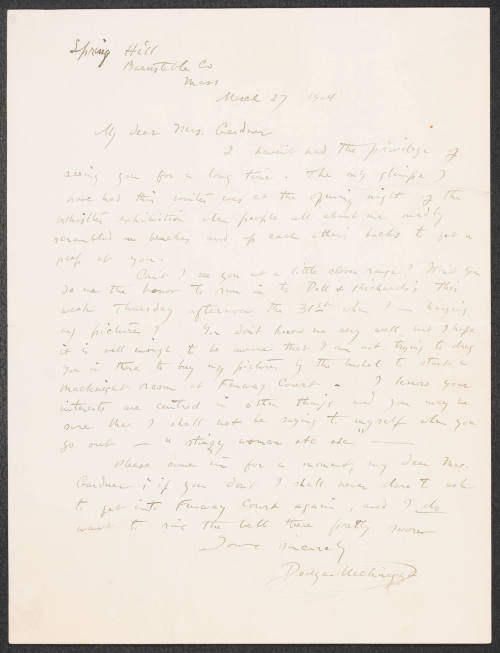 Spring Hill
Barnstable Co
Mass
March 27 1904
My dear Mrs. Gardner
I haven't had the privilege of
seeing you for a long time. The only glimpse I
have had this winter was at the opening night of the
Whistler exhibition when people all about me madly
scrambled on benches and up each others backs to get a
peep at you.
Can't I see you at a little closer range? Won't you
do me the honor to run in to Doll & Richards's this
week Thursday afternoon the 31st when I am hanging
my pictures? You don't know me very well, but I hope
it is well enough to be aware that I am not trying to drag
you in there to buy my pictures by the bushel to start a
Macknight room at Fenway Court. I know your
interests are centred in other things and you may be
sure that I shall not be saying to myself when you
go out — "a stingy woman etc etc" —
Please come in for a moment, my dear Mrs.
Gardner; if you don't I shall never dare to ask
to get into Fenway Court again, and I do
want to ring the bell there pretty soon
Yours sincerely
Dodge Macknight